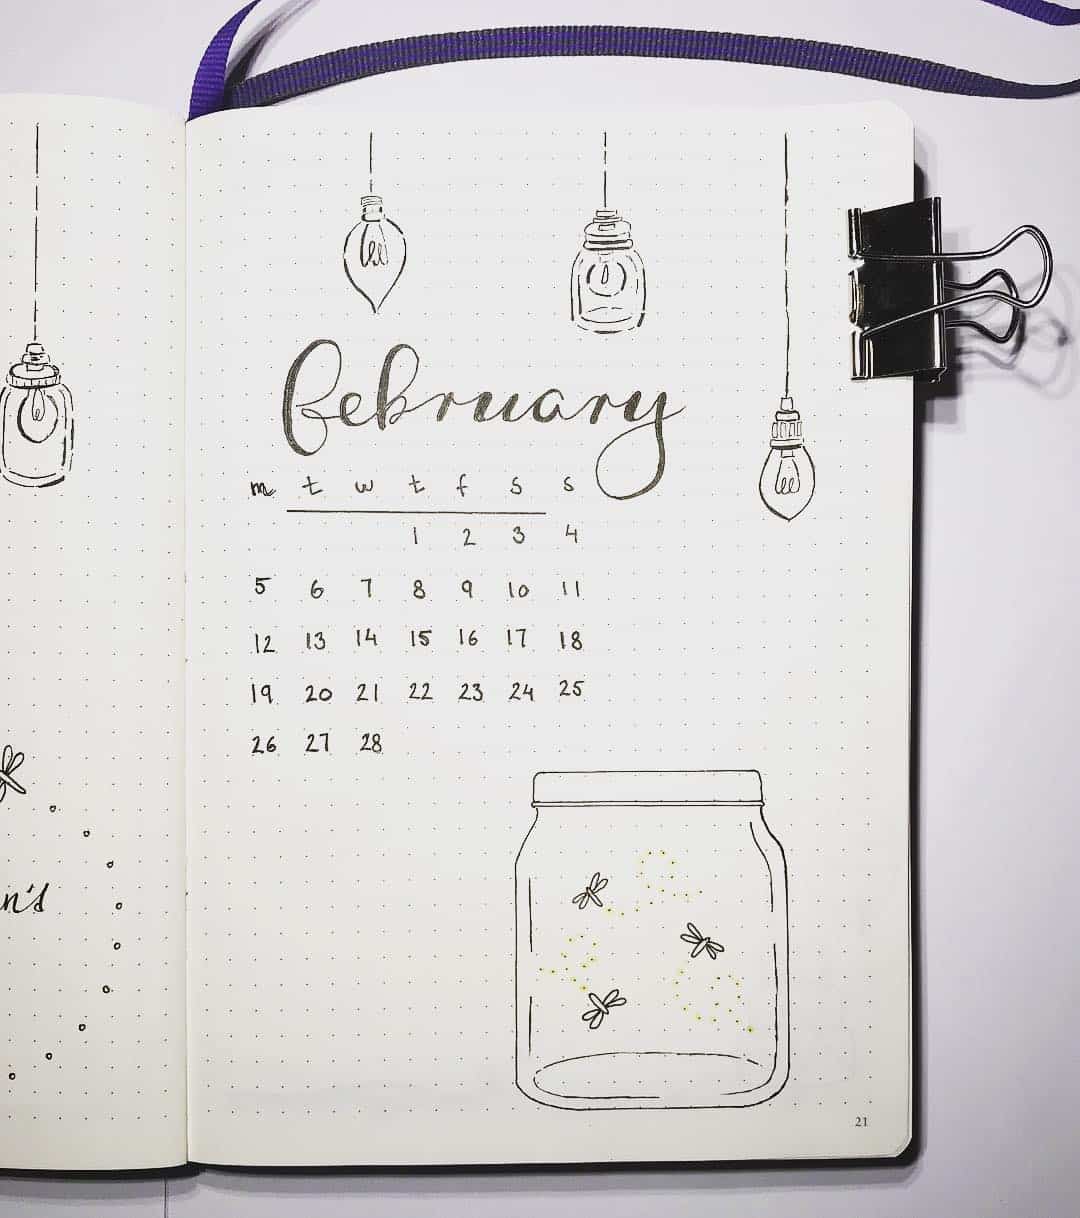 n's
February
m t w t f s s
1 2 3 4
5 6 7 8 9 10 11
12 13 14 15 16 17 18
19 20 21 22 23 24 25
26 27 28
21